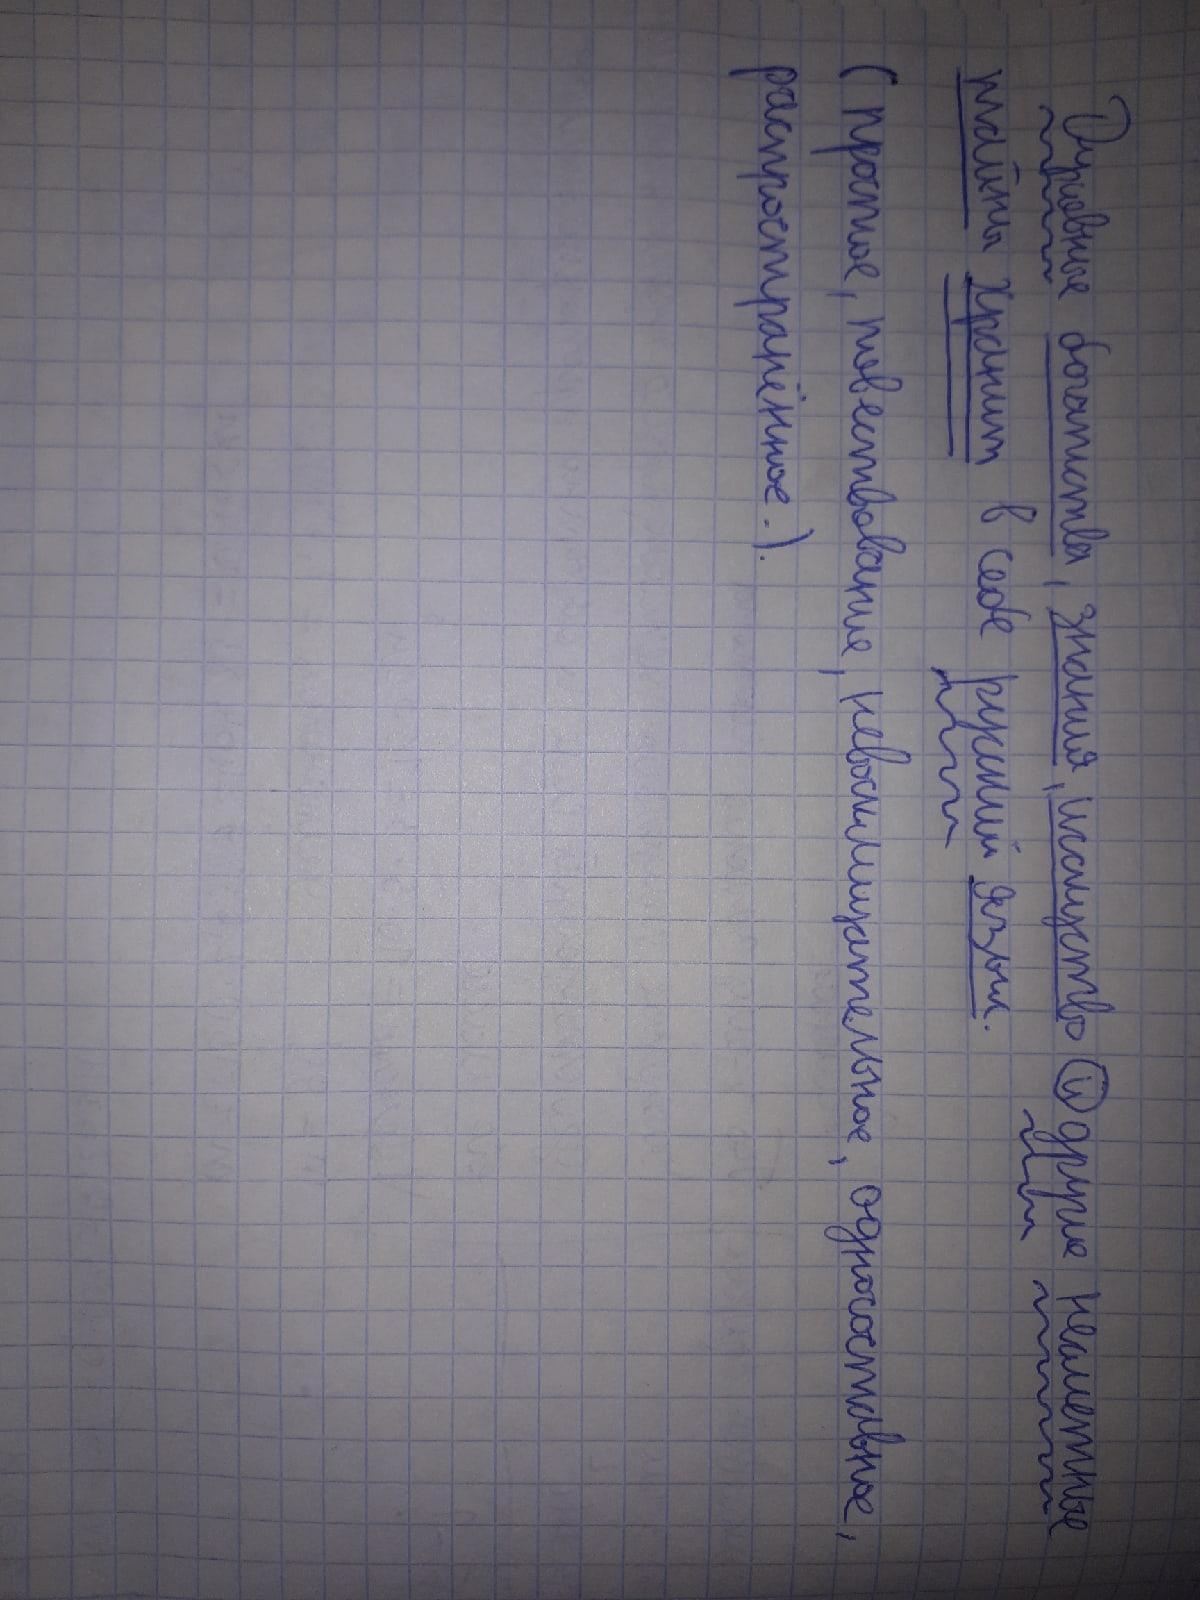 Духовные богатства, знания, искуство и другие несметные
тайны хранит в себе русский язык.
(простое, повествование, невосклицательное, односоставное,
распространённое.).